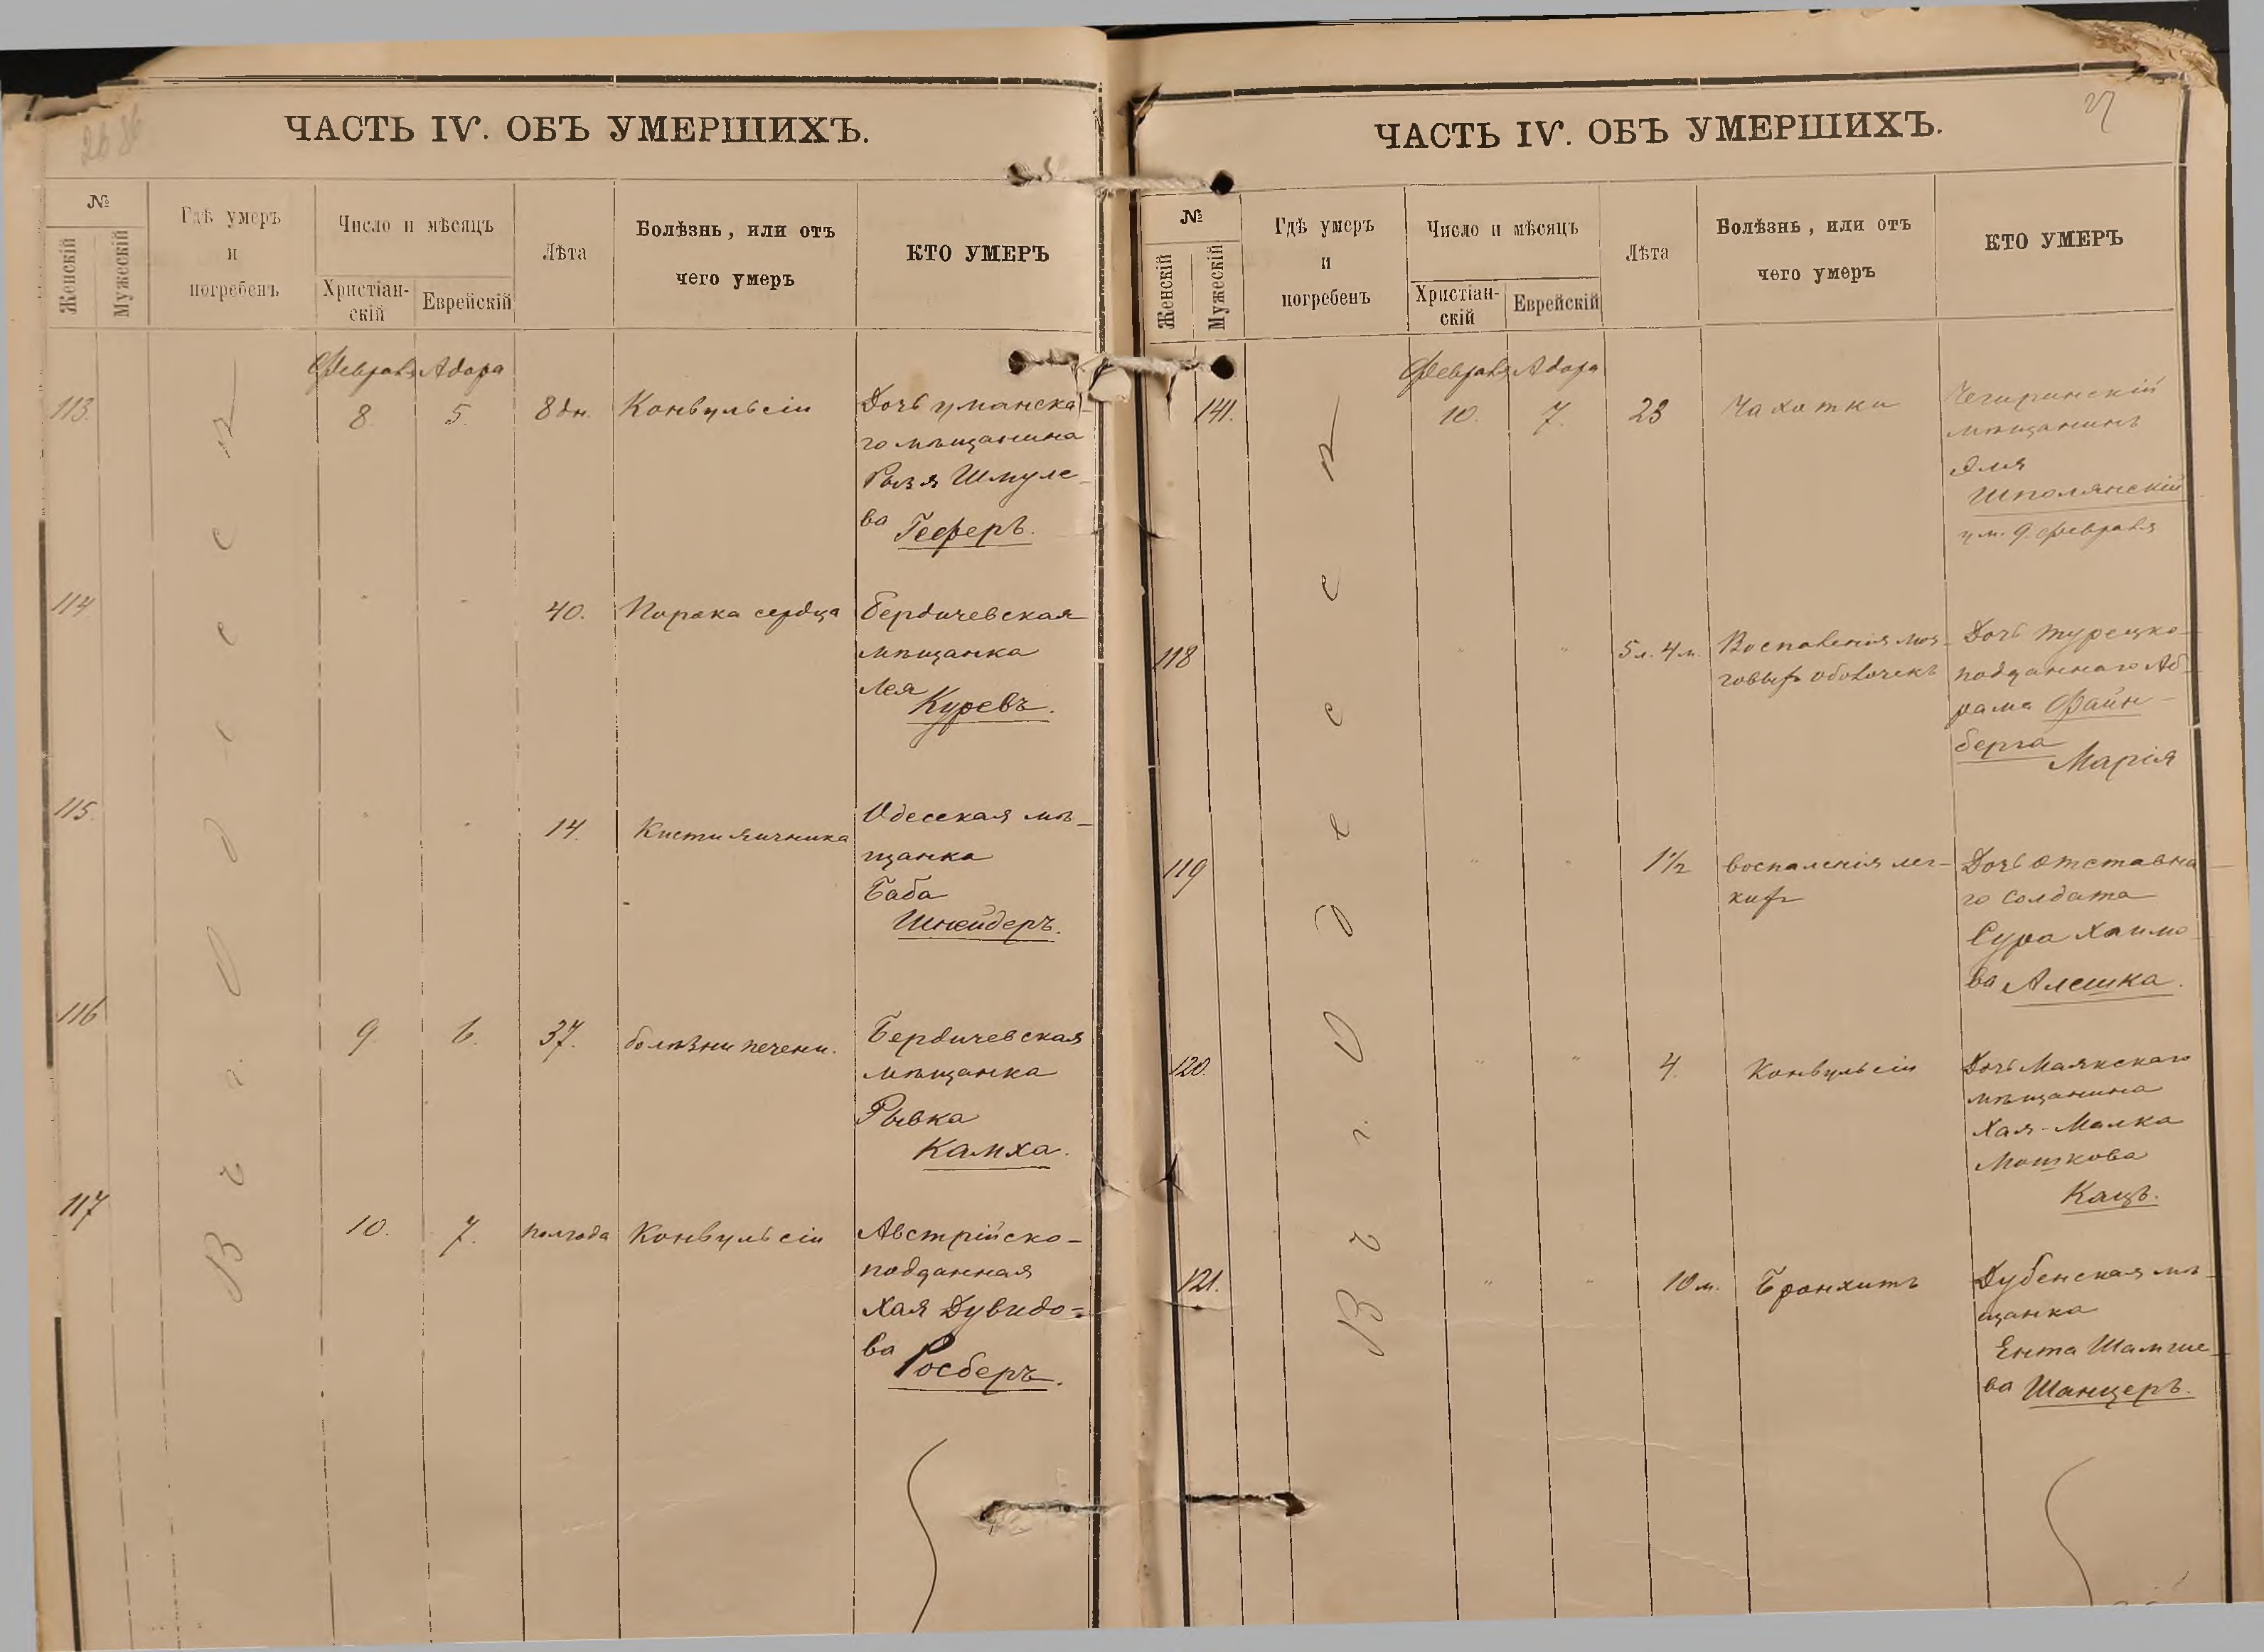 ЧАСТЬ IV. ОБЪ УМЕРШИХЪ.
№
Женскій
Мужескій
Гдѣ умеръ
и
погребенъ
Число и мѣсяцъ
Христіан-
скій
Еврейскій
Лѣта
Болѣзнь, или отъ
чего умеръ
КТО УМЕРЪ
Въ г. Одессѣ
Февраля Адара
113. 8. 5. 8 дн. Конвульсіи Дочь уманска-
го мѣщанина
Рызя Шмуле-
ва Гесферъ.
114 " " 40. Порока сердца Бердичевская
мѣщанка
Лея
Куревъ.
115. " " 14. Кисти яичника Одесская мѣ-
щанка
Баба
Шнейдеръ.
116 9. 6. 37. болѣзни печени. Бердичевская
мѣщанка
Рывка
Камха.
117 10. 7. полгода Конвульсіи Австрійско-
подданная
Хая Дувидо-
ва Росберъ.
ЧАСТЬ IV. ОБЪ УМЕРШИХЪ.
27
№
Женскій
Мужескій
Гдѣ умеръ
и
погребенъ
Число и мѣсяцъ
Христіан-
скій
Еврейскій
Лѣта
Болѣзнь, или отъ
чего умеръ
КТО УМЕРЪ
Въ г. Одессѣ
Февраля Адара
141. 10. 7. 23 Чахотки Чигиринскій
мѣщанинъ
Эля
Шполянскій
ум. 9 февраля
118 " " 5 л. 4 м. Воспаленія моз-
говыхъ оболочекъ Дочь турецко-
подданнаго Аб-
рама Файн-
берга
Марія
119 " " 1½ воспаленія лег-
кихъ Дочь отставна-
го солдата
Сура Хаимо-
ва Алешка.
120. " " 4. Конвульсіи Дочь Маякскаго
мѣщанина
Хая-Малка
Мошкова
Кацъ.
121. " " 10 м. Бронхитъ Дубенская мѣ-
щанка
Ента Шамше-
ва Шанцеръ.